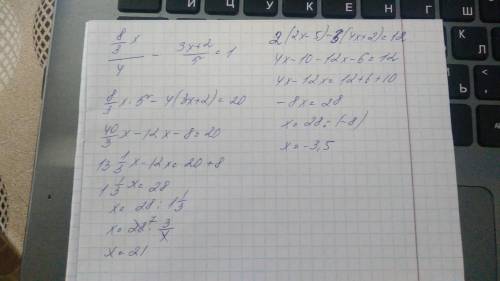 8/3 x / 4 - 3x+2 / 5 = 1
8/3 x · 5 - 4(3x+2) = 20
40/3 x - 12x - 8 = 20
13 1/3 x - 12x = 20 + 8
1 1/3 x = 28
x = 28 : 1 1/3
x = 28 7 · 3/4
x = 21
2(2x-5)-3(4x+2)=12
4x-10-12x-6=12
4x-12x=12+6+10
-8x=28
x=28:(-8)
x=-3,5